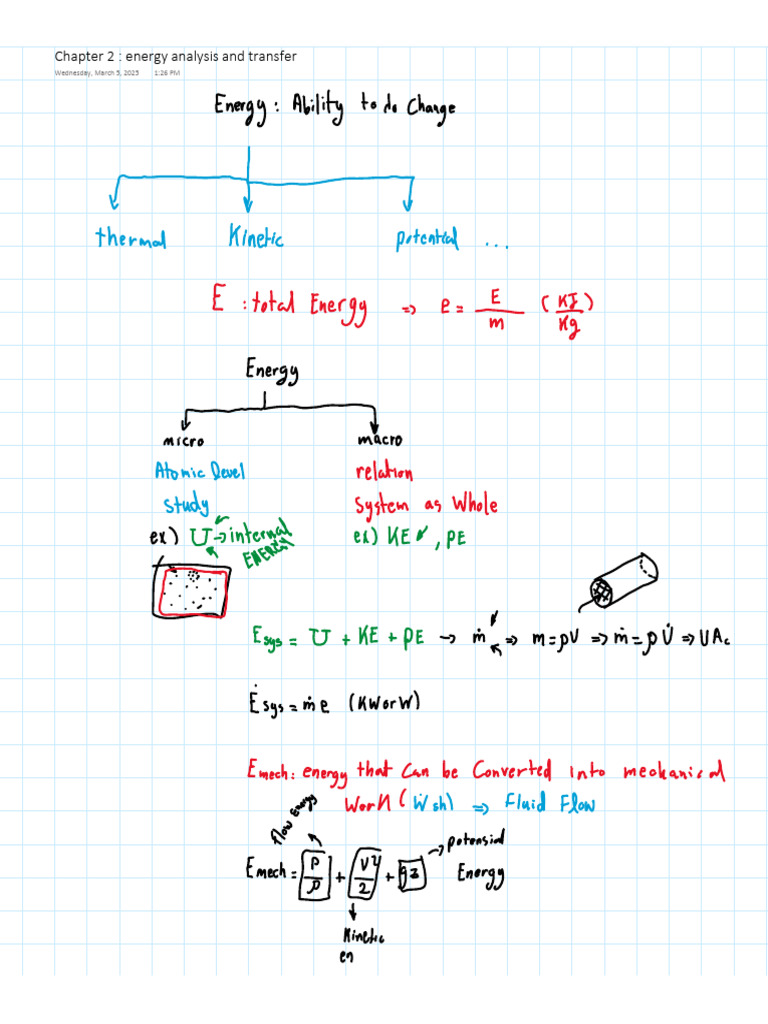 Chapter 2 : energy analysis and transfer
Wednesday, March 5, 2025 1:26 PM
Energy : Ability to do Change
thermal Kinetic potential ...
E : total Energy => e = E/m (KJ/Kg)
Energy
micro macro
Atomic level relation
study System as Whole
ex) U → internal ENERGY ex) KE, PE
E sys = U + KE + PE → ṁ => m = ρV => ṁ = ρV̇ => VAc
Ė sys = ṁe (KW or W)
Emech: energy that can be converted into mechanical
Work (Ẇsh) => Fluid Flow
flow Energy
Emech = P/ρ + V²/2 + gz → potensial Energy
Kinetic
en